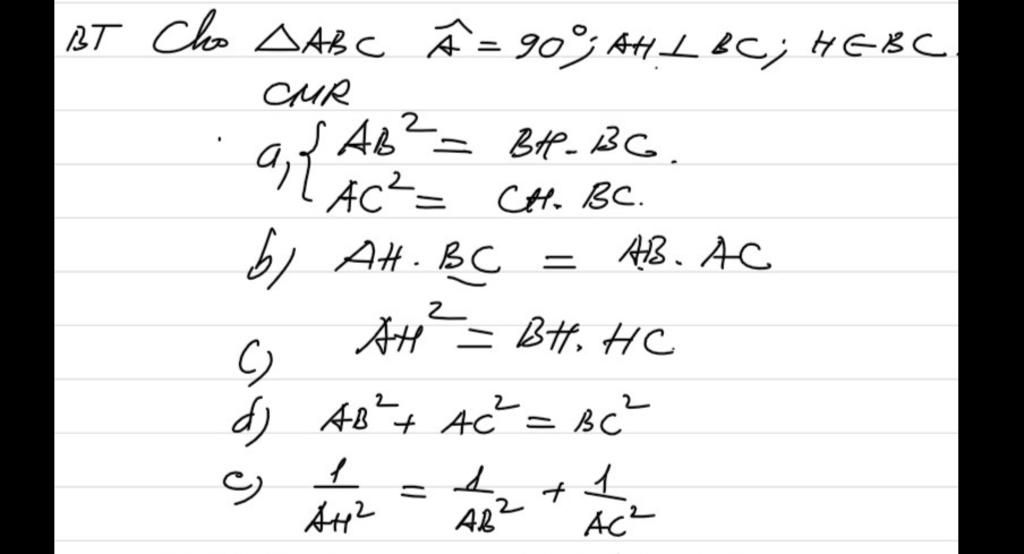 BT Cho △ABC Â = 90°; AH ⊥ BC; H ∈ BC.
CMR
a, { AB² = BH. BC.
AC² = CH. BC.
b) AH. BC = AB. AC
c) AH² = BH. HC
d) AB² + AC² = BC²
e) 1/AH² = 1/AB² + 1/AC²